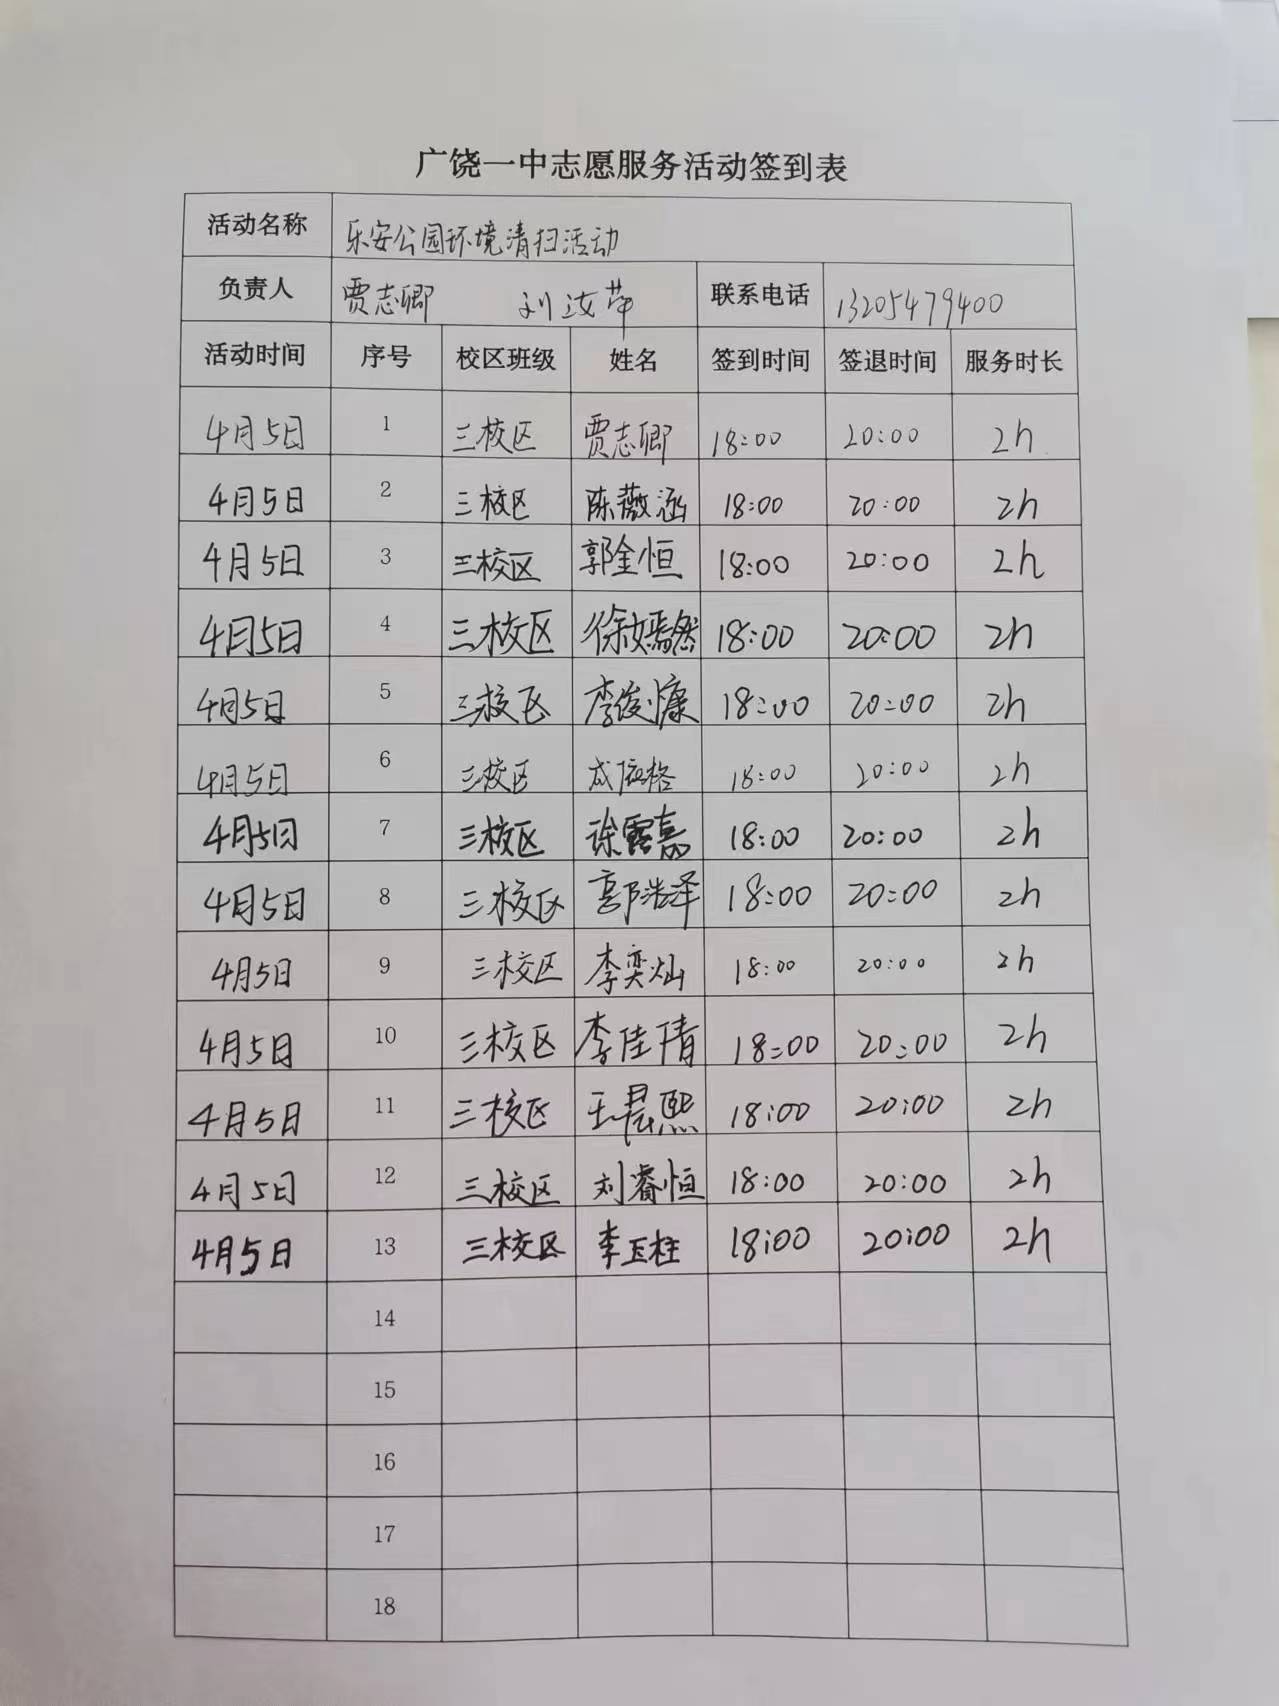 广饶一中志愿服务活动签到表
活动名称 乐安公园环境清扫活动
负责人 贾志卿 刘汝苹 联系电话 13205479400
活动时间 序号 校区班级 姓名 签到时间 签退时间 服务时长
4月5日 1 三校区 贾志卿 18:00 20:00 2h
4月5日 2 三校区 陈薇涵 18:00 20:00 2h
4月5日 3 三校区 郭金恒 18:00 20:00 2h
4月5日 4 三校区 徐嫣然 18:00 20:00 2h
4月5日 5 三校区 李俊慷 18:00 20:00 2h
4月5日 6 三校区 18:00 20:00 2h
4月5日 7 三校区 徐露嘉 18:00 20:00 2h
4月5日 8 三校区 郭浩泽 18:00 20:00 2h
4月5日 9 三校区 李奕灿 18:00 20:00 2h
4月5日 10 三校区 李佳倩 18:00 20:00 2h
4月5日 11 三校区 王晨熙 18:00 20:00 2h
4月5日 12 三校区 刘睿恒 18:00 20:00 2h
4月5日 13 三校区 李玉柱 18:00 20:00 2h
14
15
16
17
18